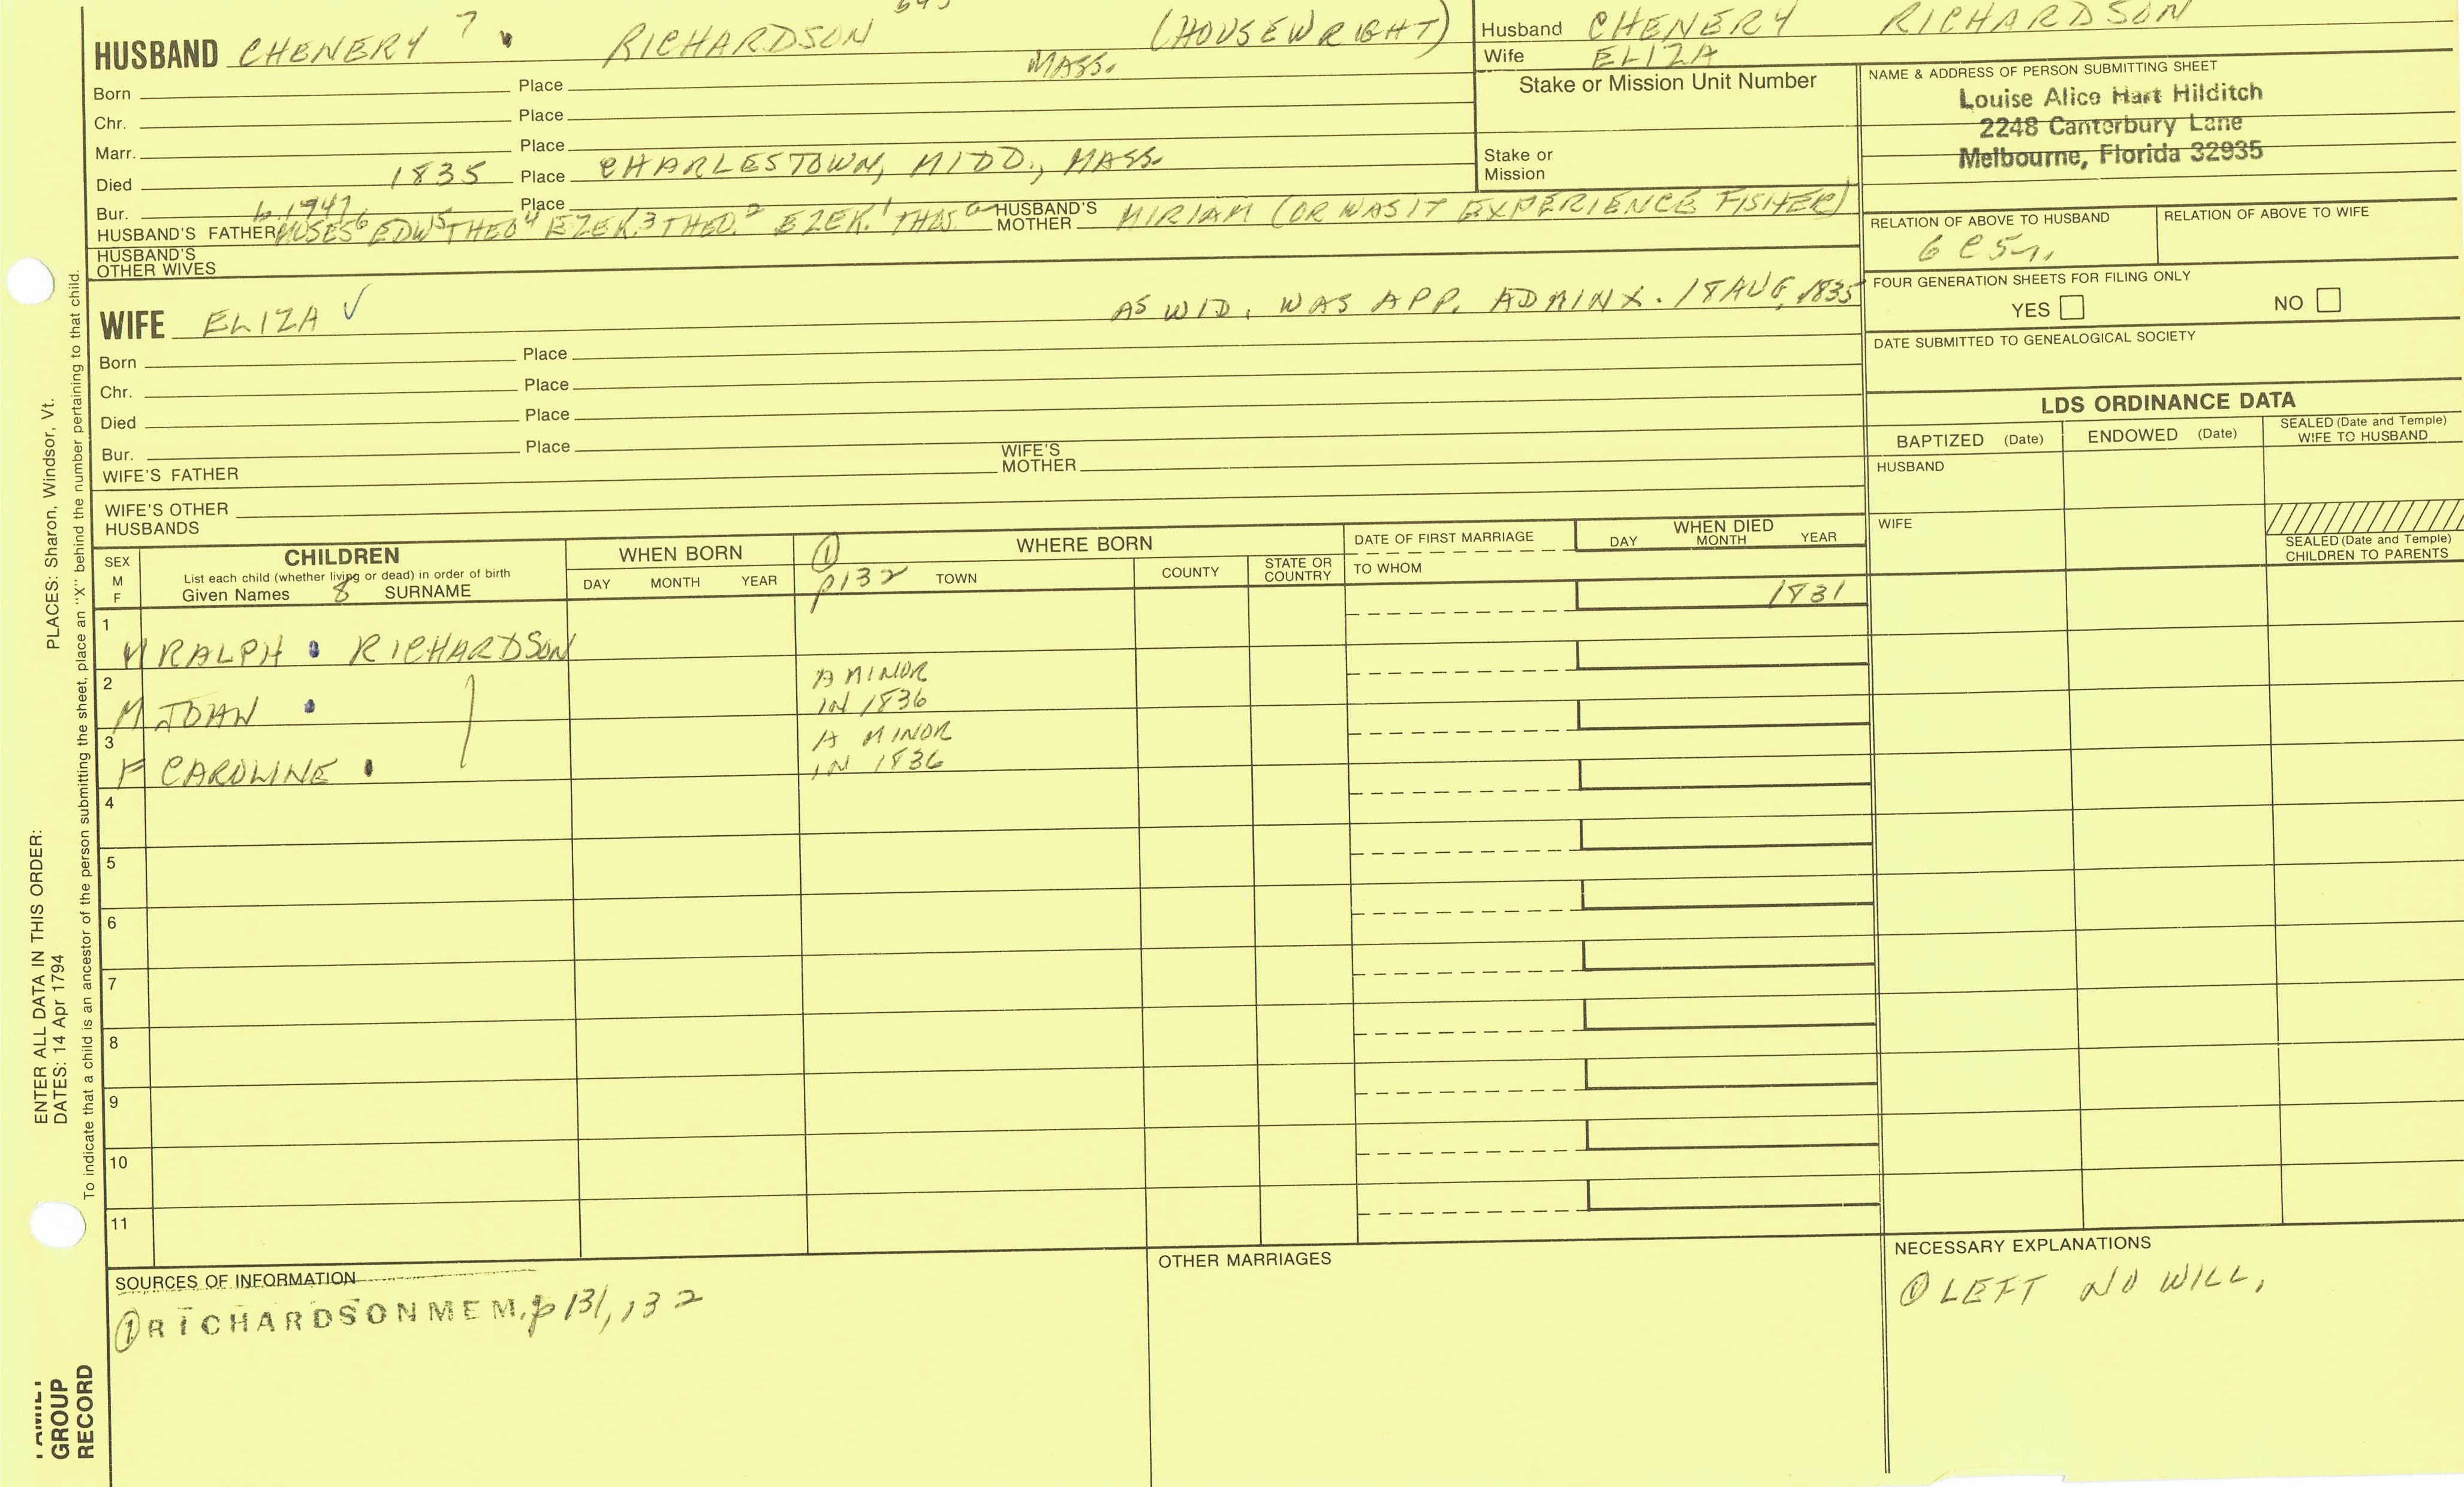 HUSBAND CHENERY 7 RICHARDSON (HOUSEWRIGHT)
MASS.
Born Place
Chr. Place
Marr. Place
Died 1835 Place CHARLESTOWN, MIDD., MASS.
Bur. Place
b. 1747
HUSBAND'S FATHER MOSES 6 EDW 5 THEO 4 EZEK. 3 THEO. 2 EZEK. 1 THOS. a HUSBAND'S MOTHER MIRIAM (OR WAS IT EXPERIENCE FISHER)
HUSBAND'S
OTHER WIVES
WIFE ELIZA ✓ AS WID. WAS APP. ADMINX. 18 AUG, 1835
Born Place
Chr. Place
Died Place
Bur. Place
WIFE'S FATHER WIFE'S MOTHER
WIFE'S OTHER
HUSBANDS
Husband CHENERY RICHARDSON
Wife ELIZA
Stake or Mission Unit Number
Stake or
Mission
NAME & ADDRESS OF PERSON SUBMITTING SHEET
Louise Alice Hart Hilditch
2248 Canterbury Lane
Melbourne, Florida 32935
RELATION OF ABOVE TO HUSBAND RELATION OF ABOVE TO WIFE
FOUR GENERATION SHEETS FOR FILING ONLY
YES NO
DATE SUBMITTED TO GENEALOGICAL SOCIETY
LDS ORDINANCE DATA
BAPTIZED (Date) ENDOWED (Date) SEALED (Date and Temple)
WIFE TO HUSBAND
HUSBAND
WIFE
SEALED (Date and Temple)
CHILDREN TO PARENTS
SEX
M
F
CHILDREN
List each child (whether living or dead) in order of birth
Given Names 8 SURNAME
WHEN BORN
DAY MONTH YEAR
① p132
WHERE BORN
TOWN COUNTY STATE OR
COUNTRY
DATE OF FIRST MARRIAGE
TO WHOM
WHEN DIED
DAY MONTH YEAR
1 M RALPH RICHARDSON 1831
2 M JOHN A MINOR
IN 1836
3 F CAROLINE A MINOR
IN 1836
4
5
6
7
8
9
10
11
SOURCES OF INFORMATION
① RICHARDSON MEM. p 131, 132
OTHER MARRIAGES
NECESSARY EXPLANATIONS
① LEFT NO WILL.
ENTER ALL DATA IN THIS ORDER:
DATES: 14 Apr 1794
PLACES: Sharon, Windsor, Vt.
To indicate that a child is an ancestor of the person submitting the sheet, place an "X" behind the number pertaining to that child.
FAMILY
GROUP
RECORD